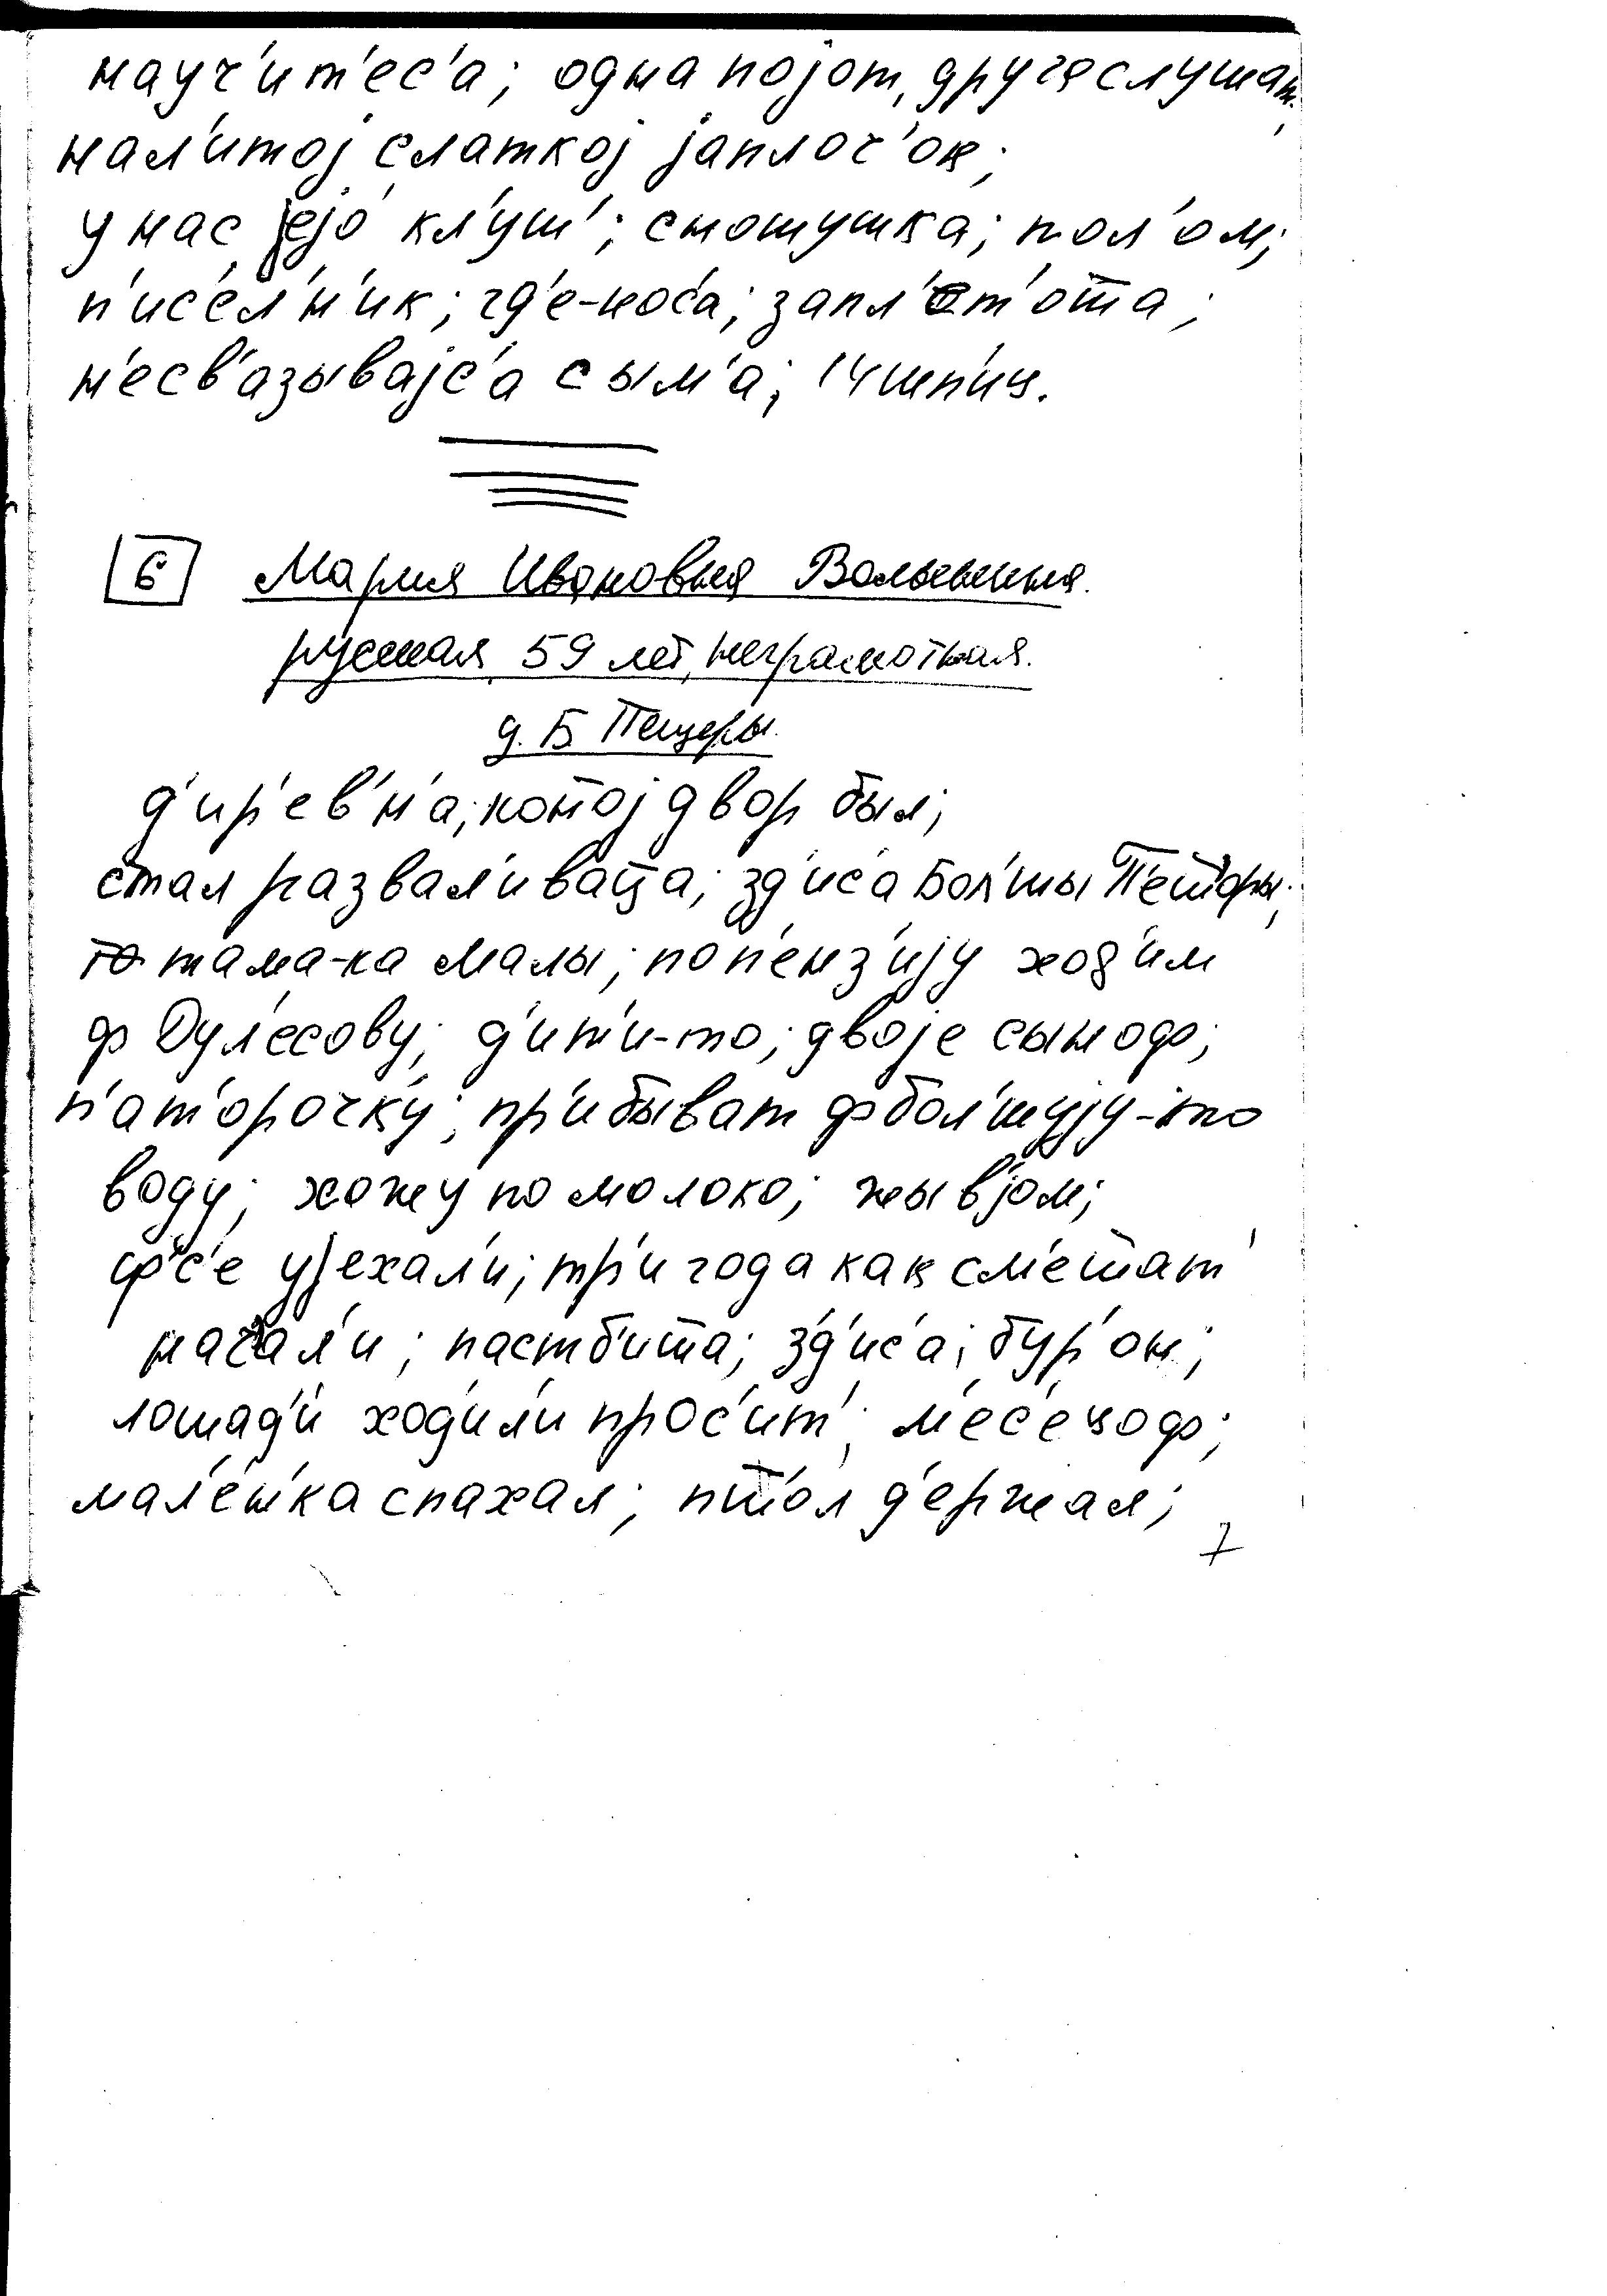 науч'ит'ес'а; одна појот, друга слушат.
нал'итој слаткој јаплоч'ок;
у нас јејо кл'уш'; сношушка; пол'ом;
п'ис'ел'н'ик; гд'е-кос'а; запл'ет'о̄та;
н'есв'азывајс'а сым'а; 14 шп'иц.
6 Мария Ивановна
русская, 59 лет, неграмотная.
д. Б Пещеры.
д'ир'ев'н'а; котој двор был;
стал развал'иваца; зд'ис'а Бол'шы П'ешоры;
тама-ка Малы; по п'енз'ију ход'им
ф Дул'есову; д'ит'и-то; двоје сыноф;
п'ат'орочку; пр'ибыват ф бол'шују-то
воду; хожу по молоко; жывјом;
ф'с'е ујехал'и; тр'и года как см'ешат'
начал'и; пастб'ишша; з'д'ис'а; бур'он;
лошад'и ход'ил'и прос'ит'; м'ес'ецоф;
мал'ен'ка спахал; пшол д'ержал;
7